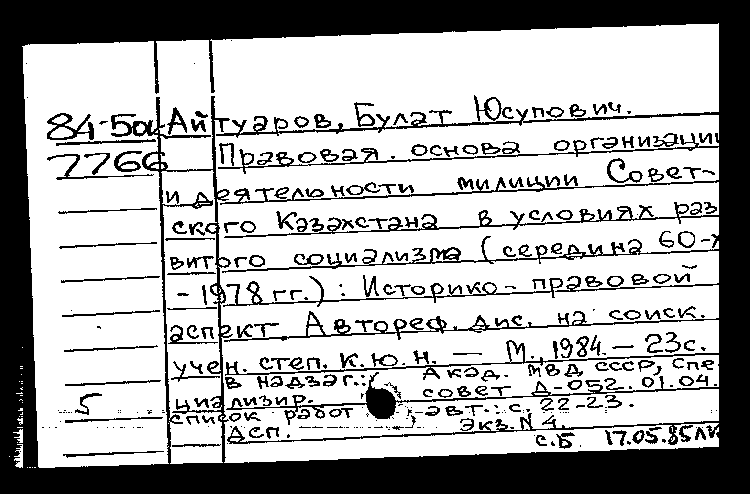 84-5ок Айтуаров, Булат Юсупович.
7766 Правовая основа организации
и деятельности милиции Совет-
ского Казахстана в условиях раз
витого социализма (середина 60-х
- 1978 гг.): Историко-правовой
аспект. Автореф. дис. на соиск.
учен. степ. к.ю.н. — М., 1984. — 23с.
В надзаг.: Акад. МВД СССР, Спе
циализир. совет Д-052.01.04.
5
Список работ авт.: с. 22-23.
ДСП. Экз. N 4.
с.Б 17.05.85